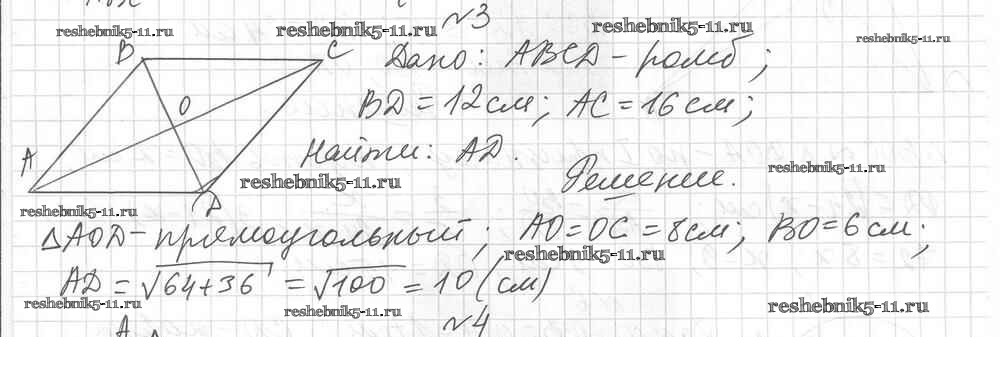 №3
reshebnik5-11.ru reshebnik5-11.ru reshebnik5-11.ru reshebnik5-11.ru
B C
Дано: ABCD - ромб;
O
BD = 12 см; AC = 16 см;
A
Найти: AD.
reshebnik5-11.ru
reshebnik5-11.ru
Решение.
D
reshebnik5-11.ru
△AOD - прямоугольный; AO = OC = 8 см; BO = 6 см;
reshebnik5-11.ru
AD = √64+36 = √100 = 10 (см)
reshebnik5-11.ru reshebnik5-11.ru reshebnik5-11.ru
№4
A